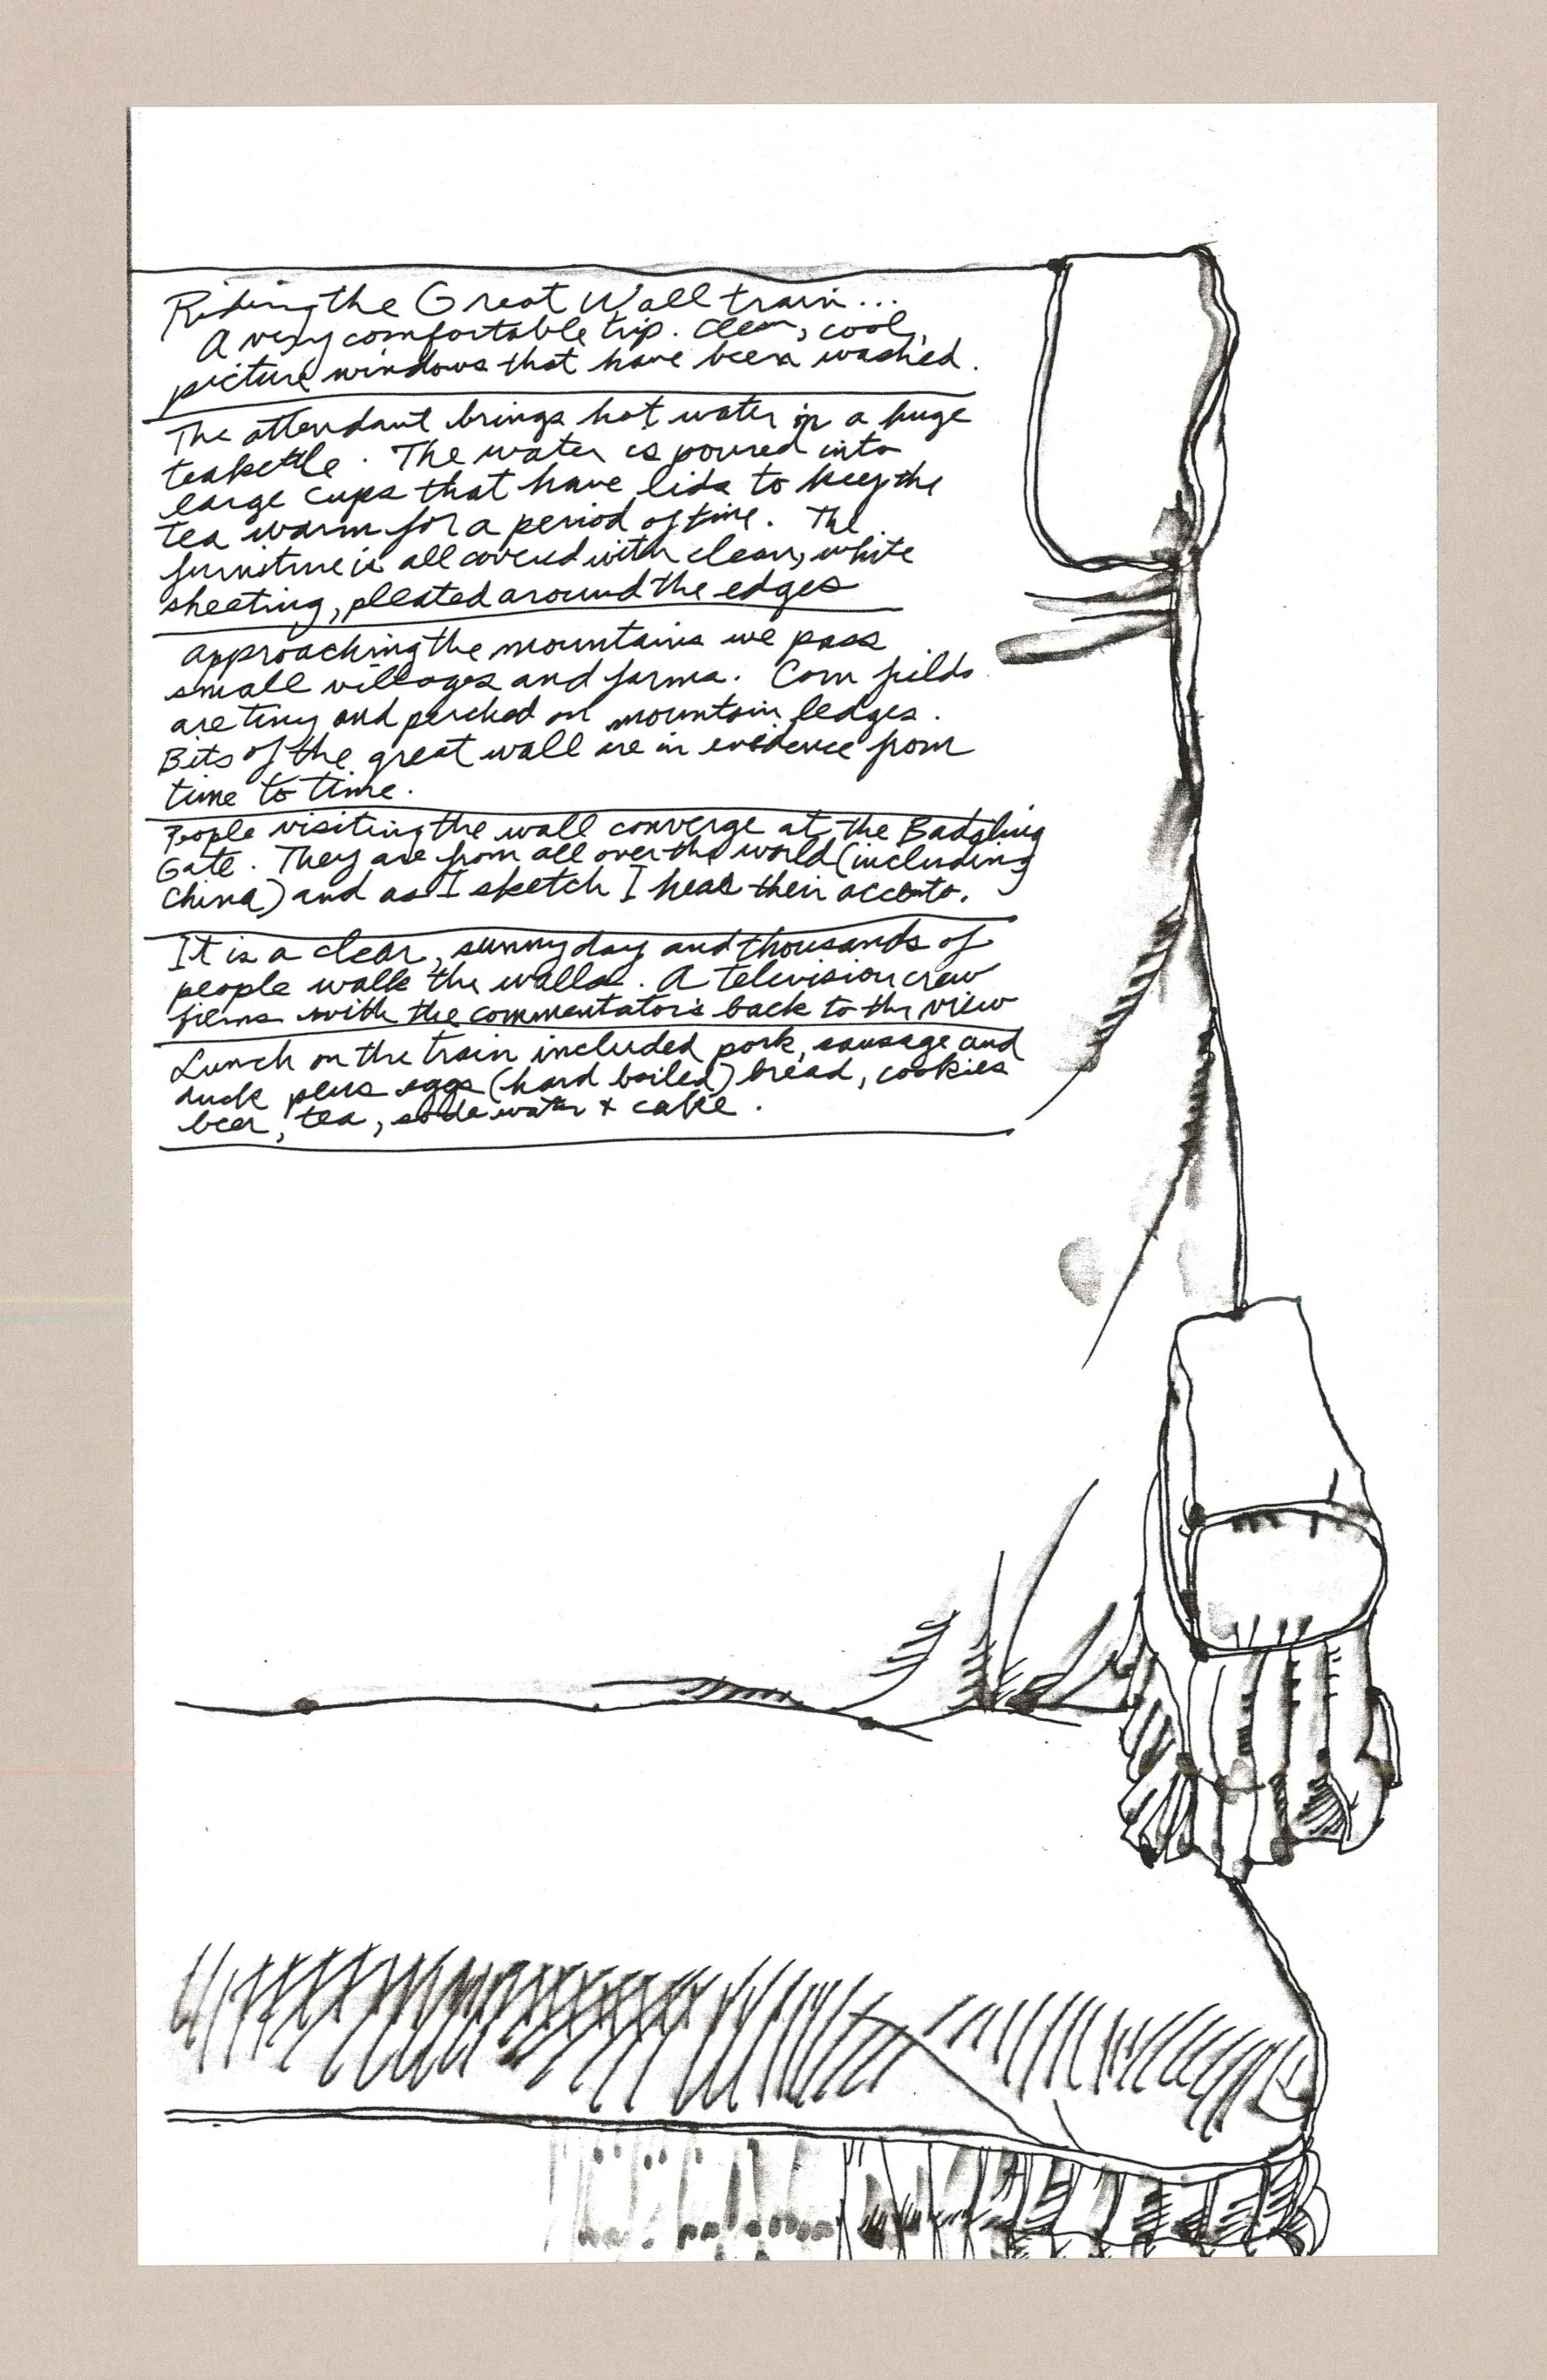 Riding the Great Wall train...
A very comfortable trip. Clean, cool,
picture windows that have been washed.
The attendant brings hot water in a huge
teakettle. The water is poured into
large cups that have lids to keep the
tea warm for a period of time. The
furniture is all covered with clean, white
sheeting, pleated around the edges
Approaching the mountains we pass
small villages and farms. Corn fields
are tiny and perched on mountain ledges.
Bits of the great wall are in evidence from
time to time.
People visiting the wall converge at the Badaling
Gate. They are from all over the world (including
China) and as I sketch I hear their accents.
It is a clear, sunny day and thousands of
people walk the walls. A television crew
films with the commentator's back to the view
Lunch on the train included pork, sausage and
duck plus eggs (hard boiled) bread, cookies
beer, tea, soda water + cake.